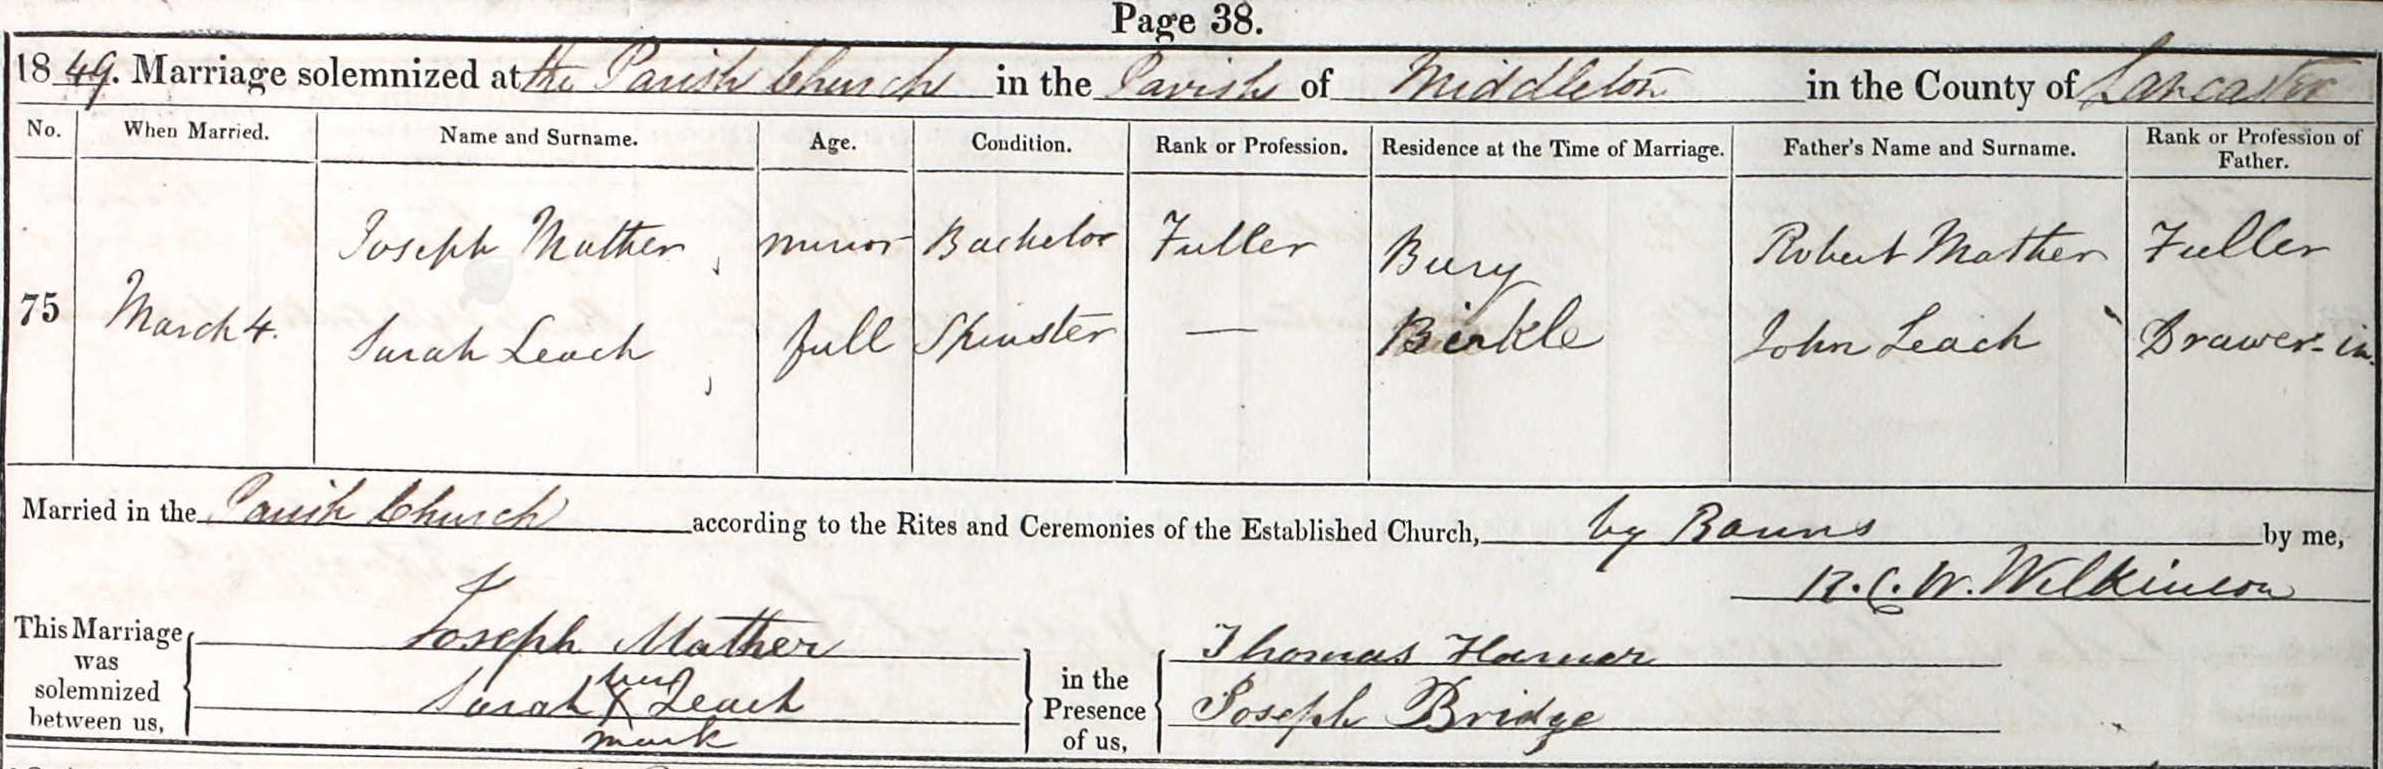 Page 38.
1849. Marriage solemnized at the Parish Church in the Parish of Middleton in the County of Lancaster
No. When Married. Name and Surname. Age. Condition. Rank or Profession. Residence at the Time of Marriage. Father's Name and Surname. Rank or Profession of Father.
Joseph Mather minor Bachelor Fuller Bury Robert Mather Fuller
75 March 4. Sarah Leach full Spinster — Birkle John Leach Drawer-in
Married in the Parish Church according to the Rites and Ceremonies of the Established Church, by Banns by me,
R. C. W. Wilkinson
This Marriage was solemnized between us, Joseph Mather in the Presence of us, Thomas Hamer
Sarah her X Leach Joseph Bridge
mark